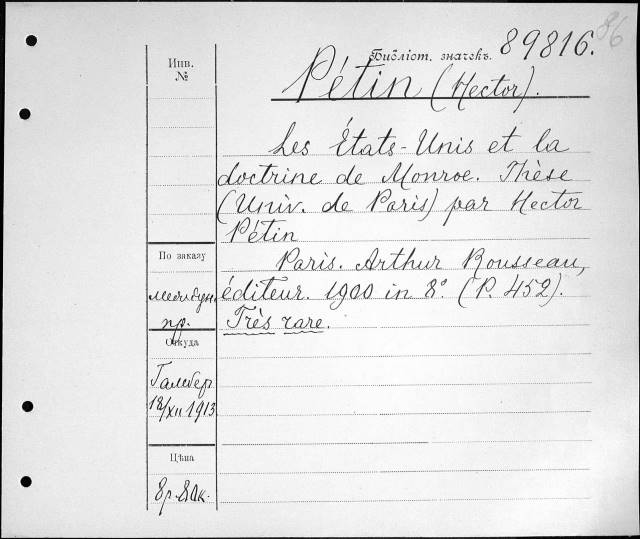 86
Библіот. значекъ. 89816.
Инв.
№
Pétin (Hector).
Les États-Unis et la
doctrine de Monroe. Thèse
(Univ. de Paris) par Hector
Pétin
Paris. Arthur Rousseau,
éditeur. 1900 in 8º. (P. 452).
Très rare.
По заказу
пр.
Откуда
18/XII 1913
Цѣна
8р. 80к.